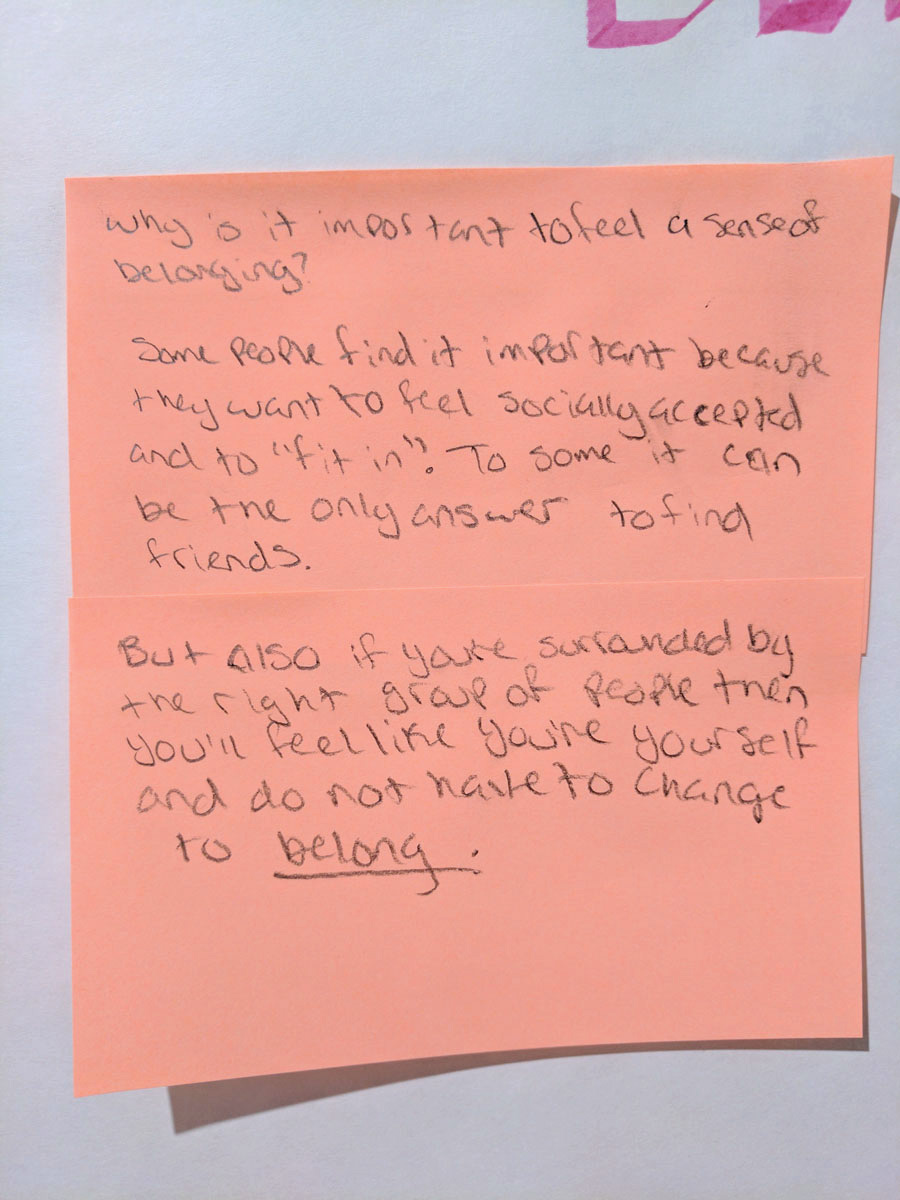 Why is it important to feel a sense of
belonging?
Some people find it important because
they want to feel socially accepted
and to "fit in". To some it can
be the only answer to find
friends.
But also if you're surrounded by
the right group of people then
you'll feel like you're yourself
and do not have to change
to belong.